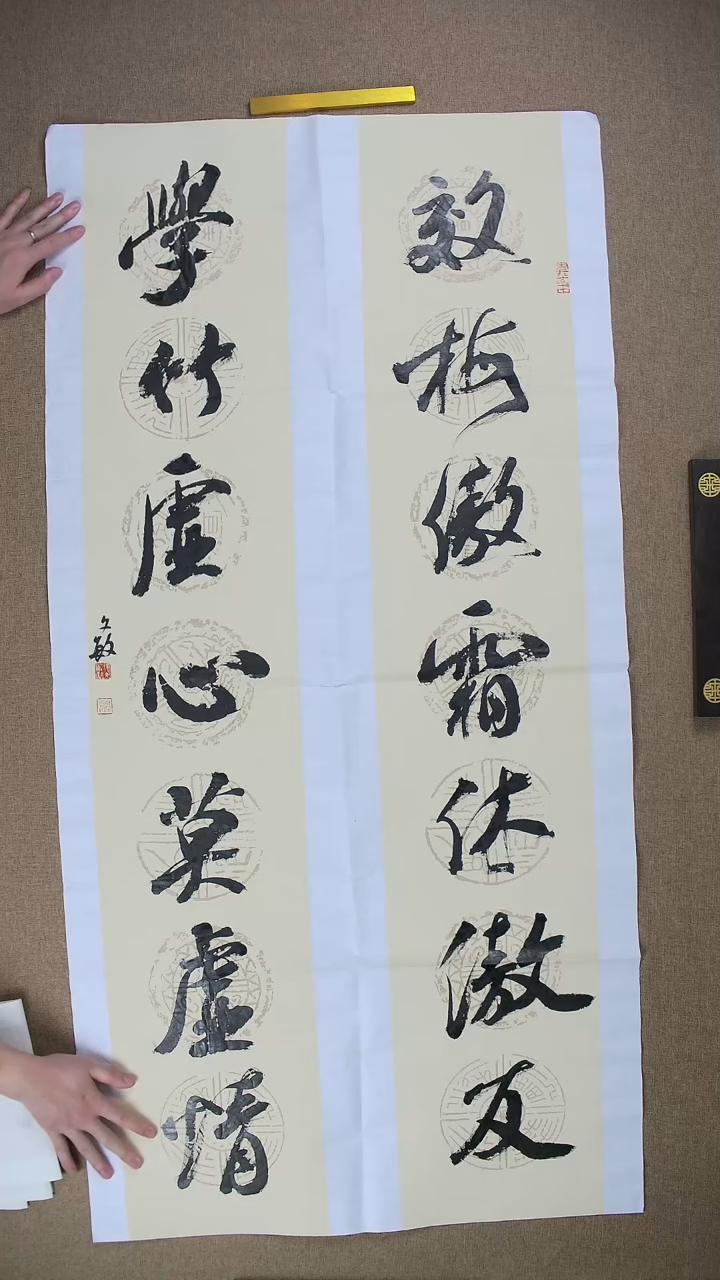 效梅傲霜休傲友
學竹虛心莫虛情
文敏